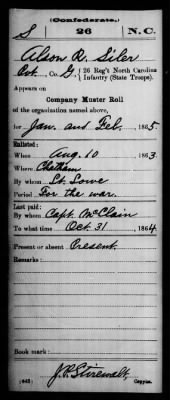 (Confederate.)
S 26 N.C.
Alson R. Siler
Pvt., Co. G, 26 Reg't North Carolina
Infantry (State Troops).
Appears on
Company Muster Roll
of the organization named above,
for Jan. and Feb., 1865.
Enlisted:
When Aug. 10, 1863.
Where Chatham
By whom Lt. Lowe
Period For the war.
Last paid:
By whom Capt. McClain
To what time Oct. 31, 1864
Present or absent Present.
Remarks:
Book mark:
J. P. Stirewalt,
(642) Copyist.